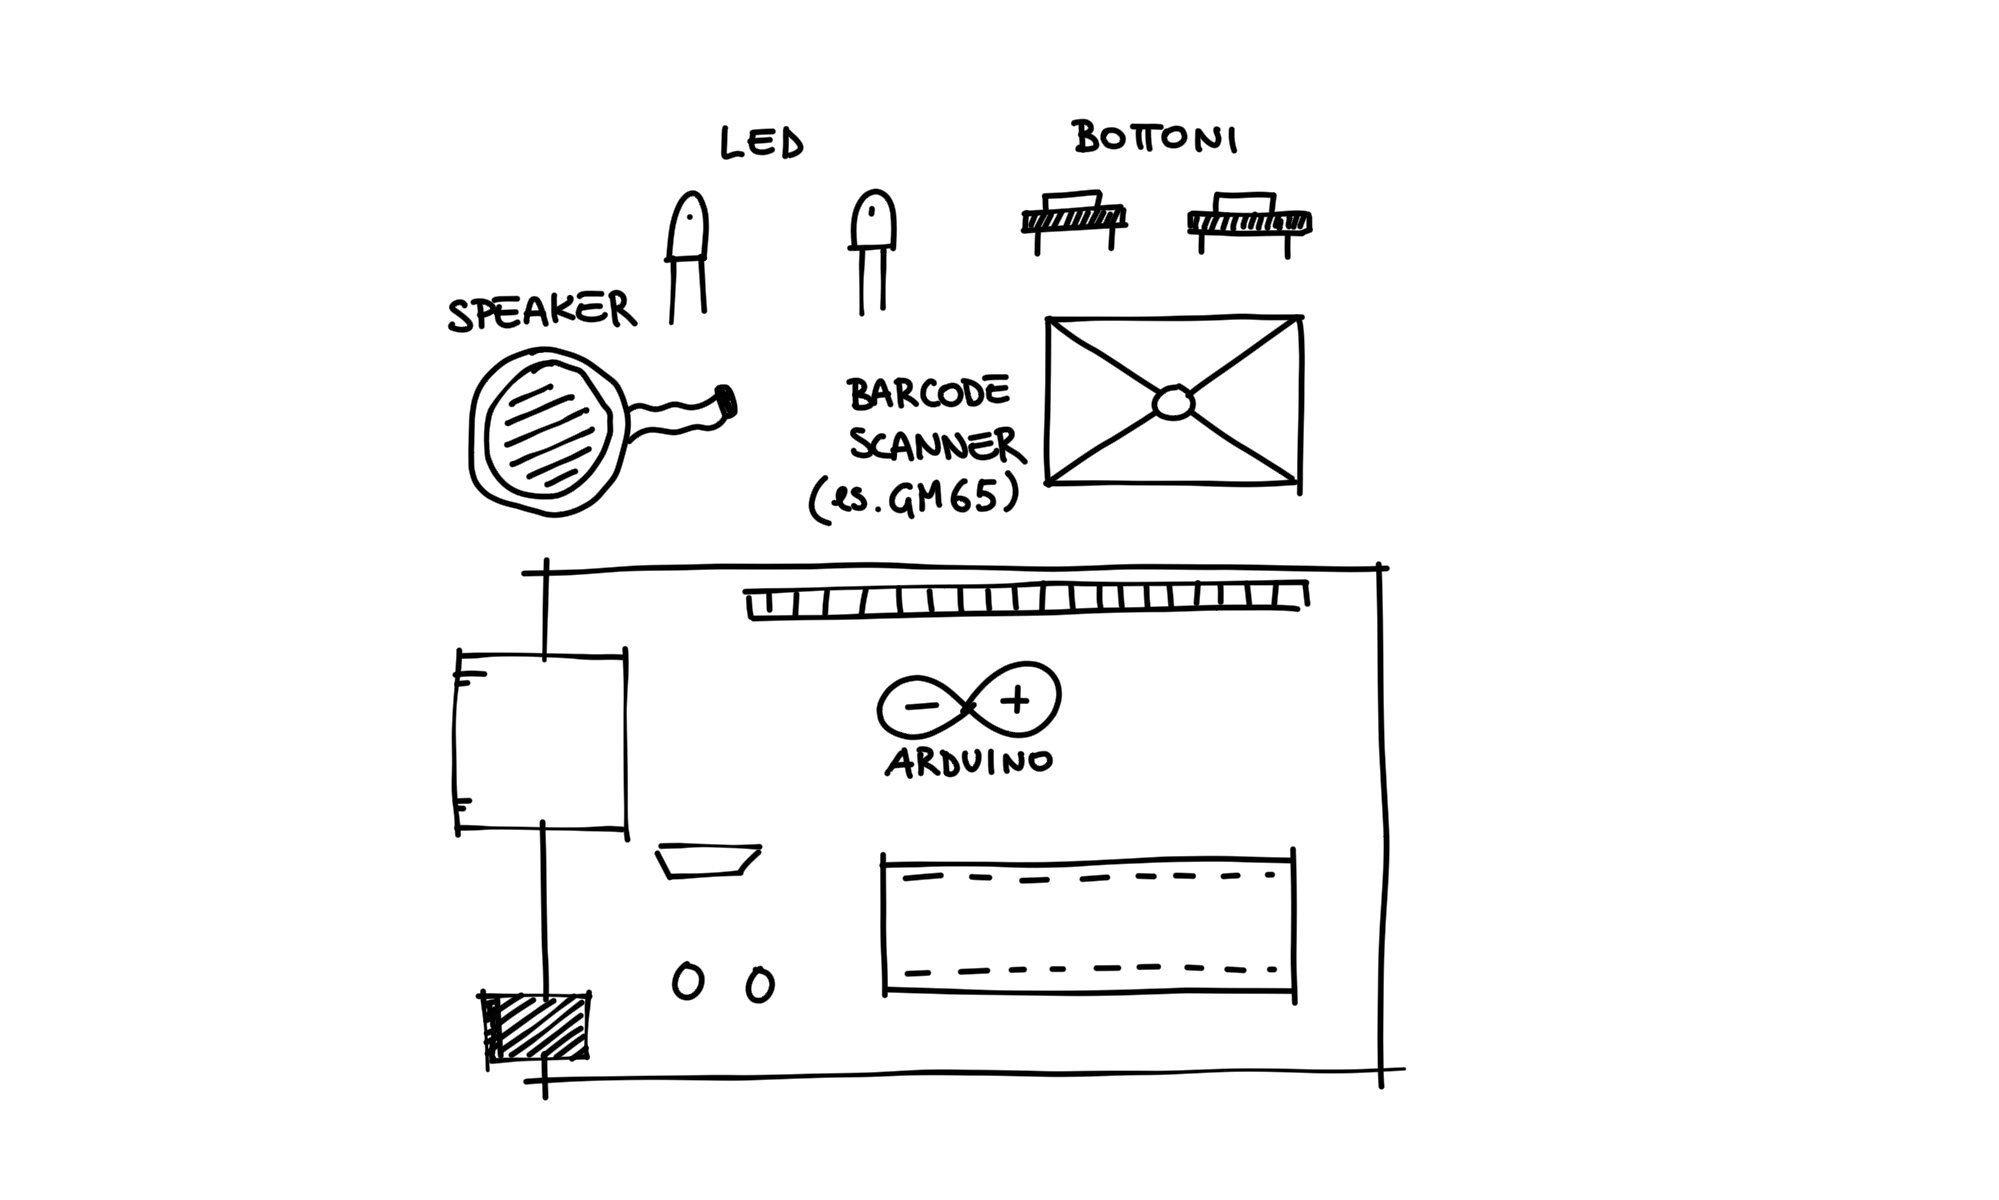 LED
BOTTONI
SPEAKER
BARCODE
SCANNER
(es. GM65)
- +
ARDUINO